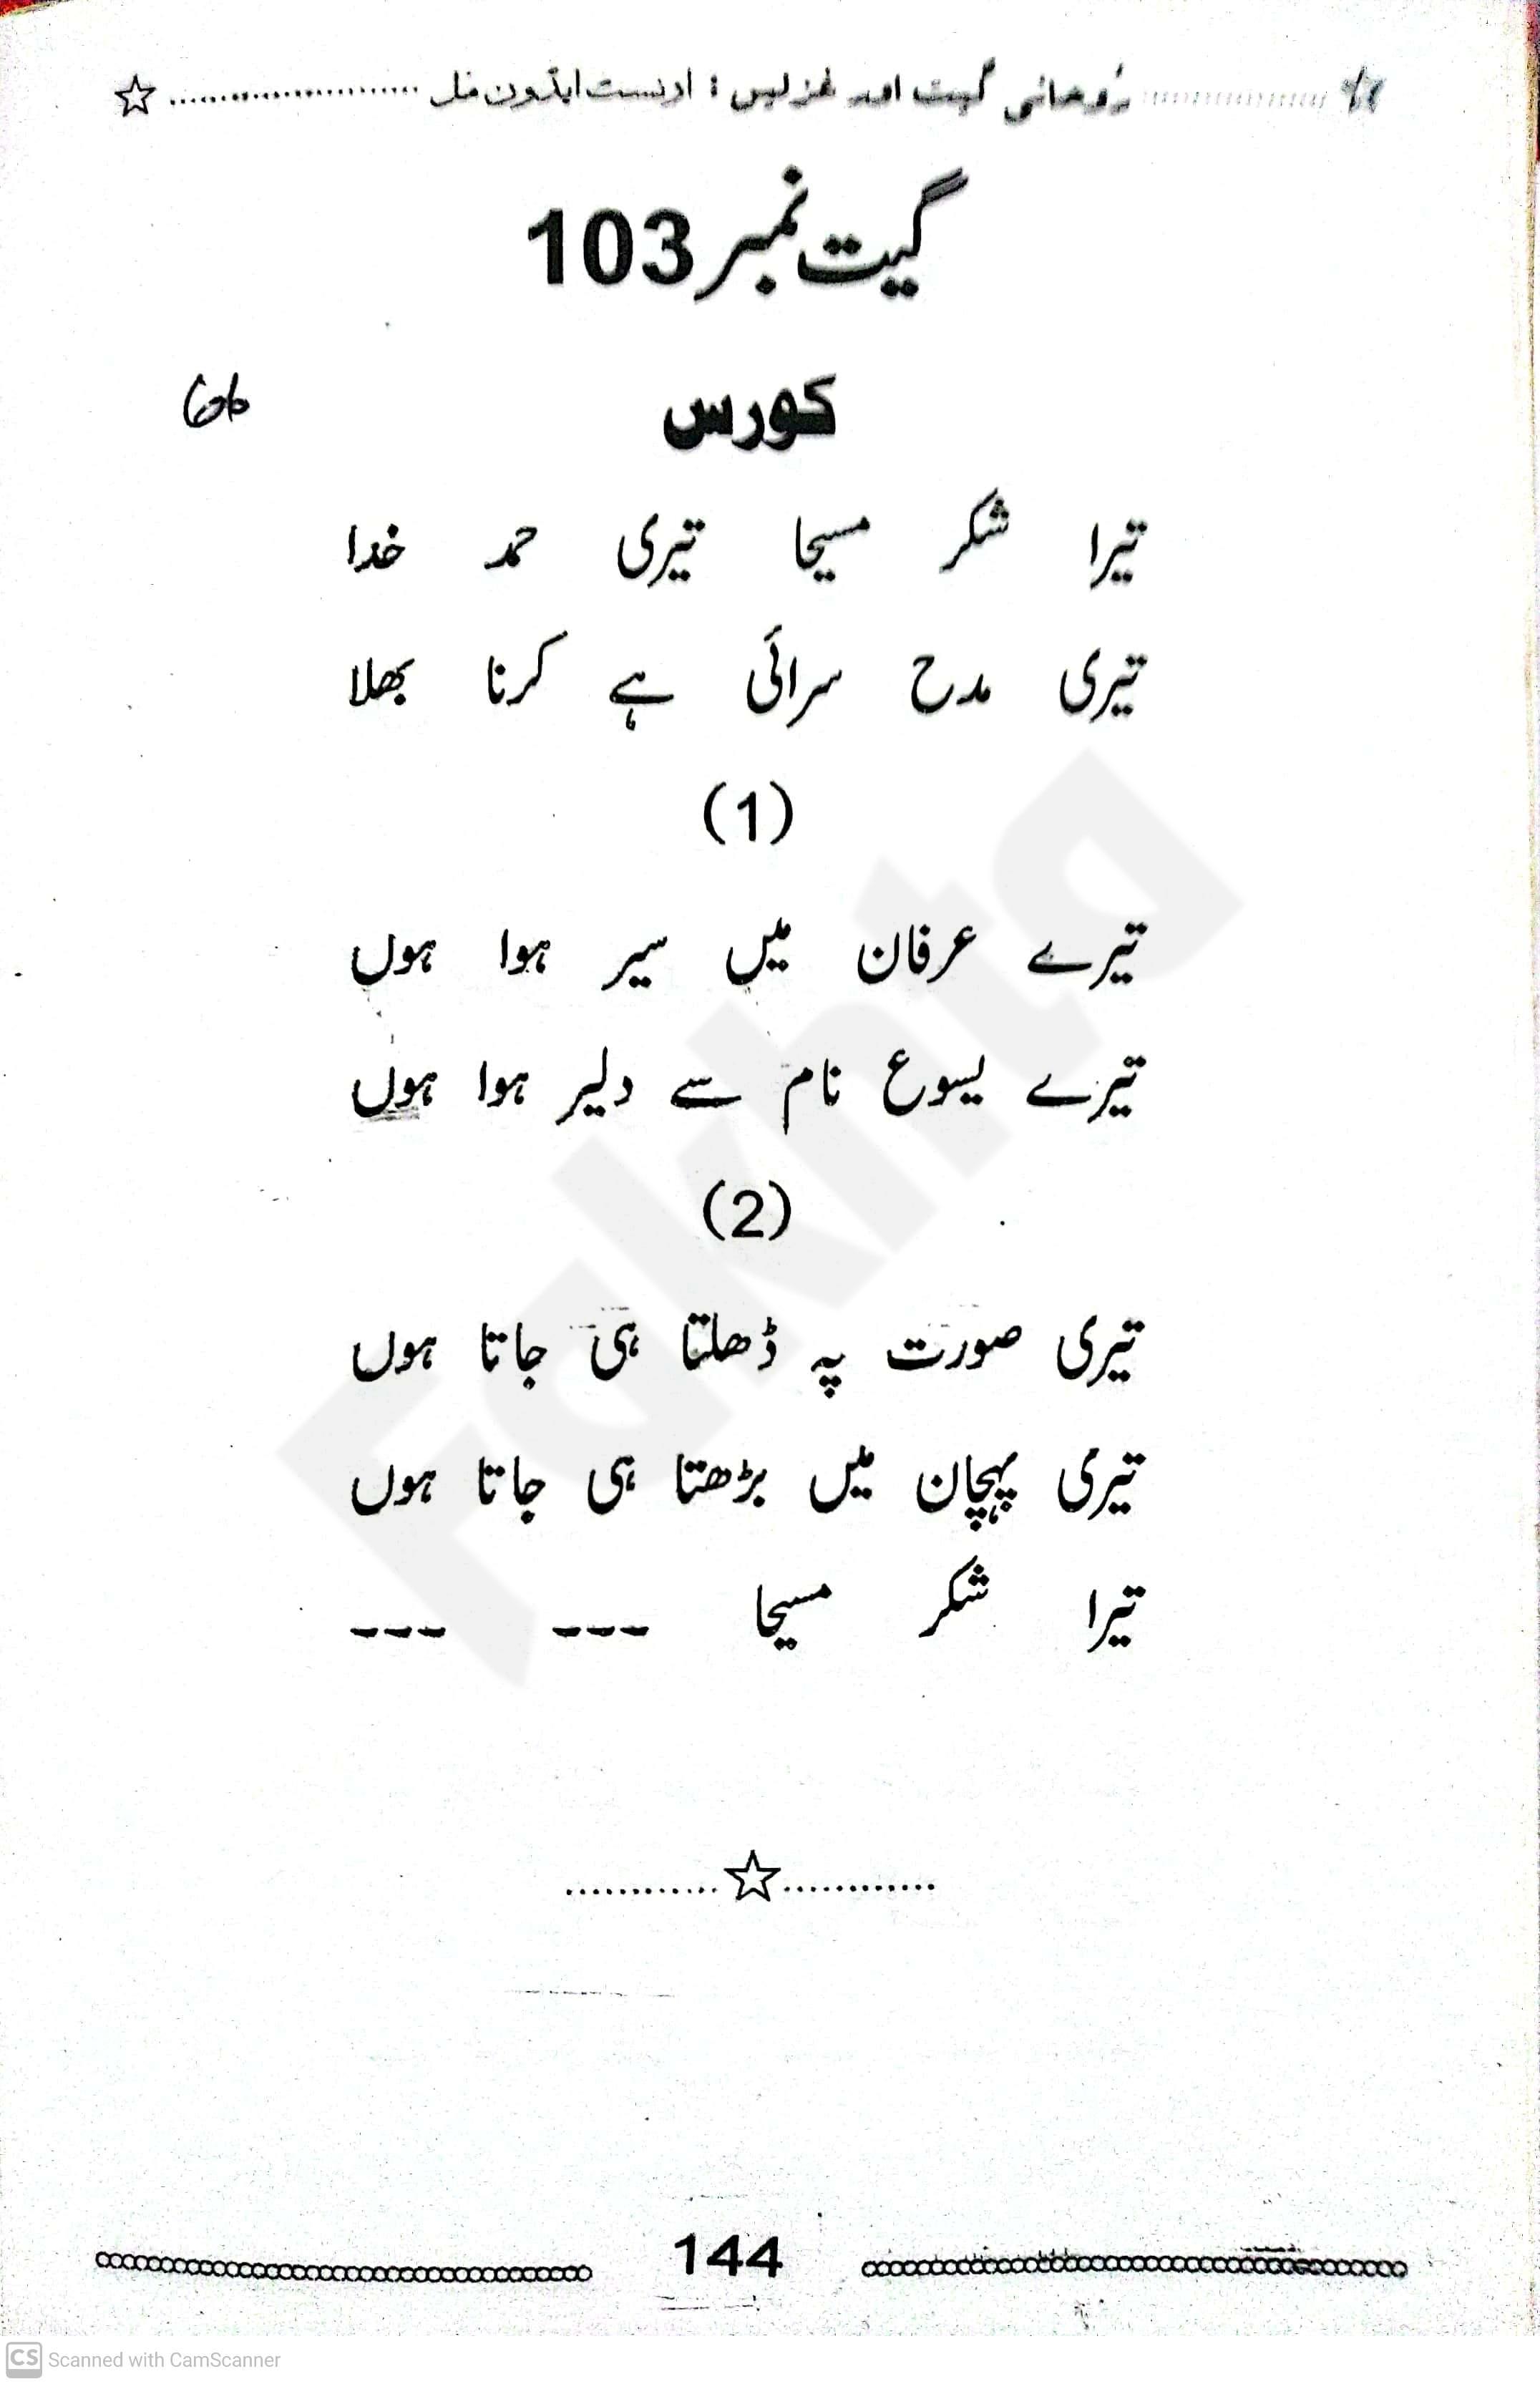 رُوحانی گیت اور غزلیں : ارنسٹ ایڈون مل
گیت نمبر 103
66
کورس
تیرا شکر مسیحا تیری حمد خدا
تیری مدح سرائی ہے کرنا بھلا
(1)
تیرے عرفان میں سیر ہوا ہوں
تیرے یسوع نام سے دلیر ہوا ہوں
(2)
تیری صورت پہ ڈھلتا ہی جاتا ہوں
تیری پہچان میں بڑھتا ہی جاتا ہوں
تیرا شکر مسیحا --- ---
144
Fakhta
CS Scanned with CamScanner